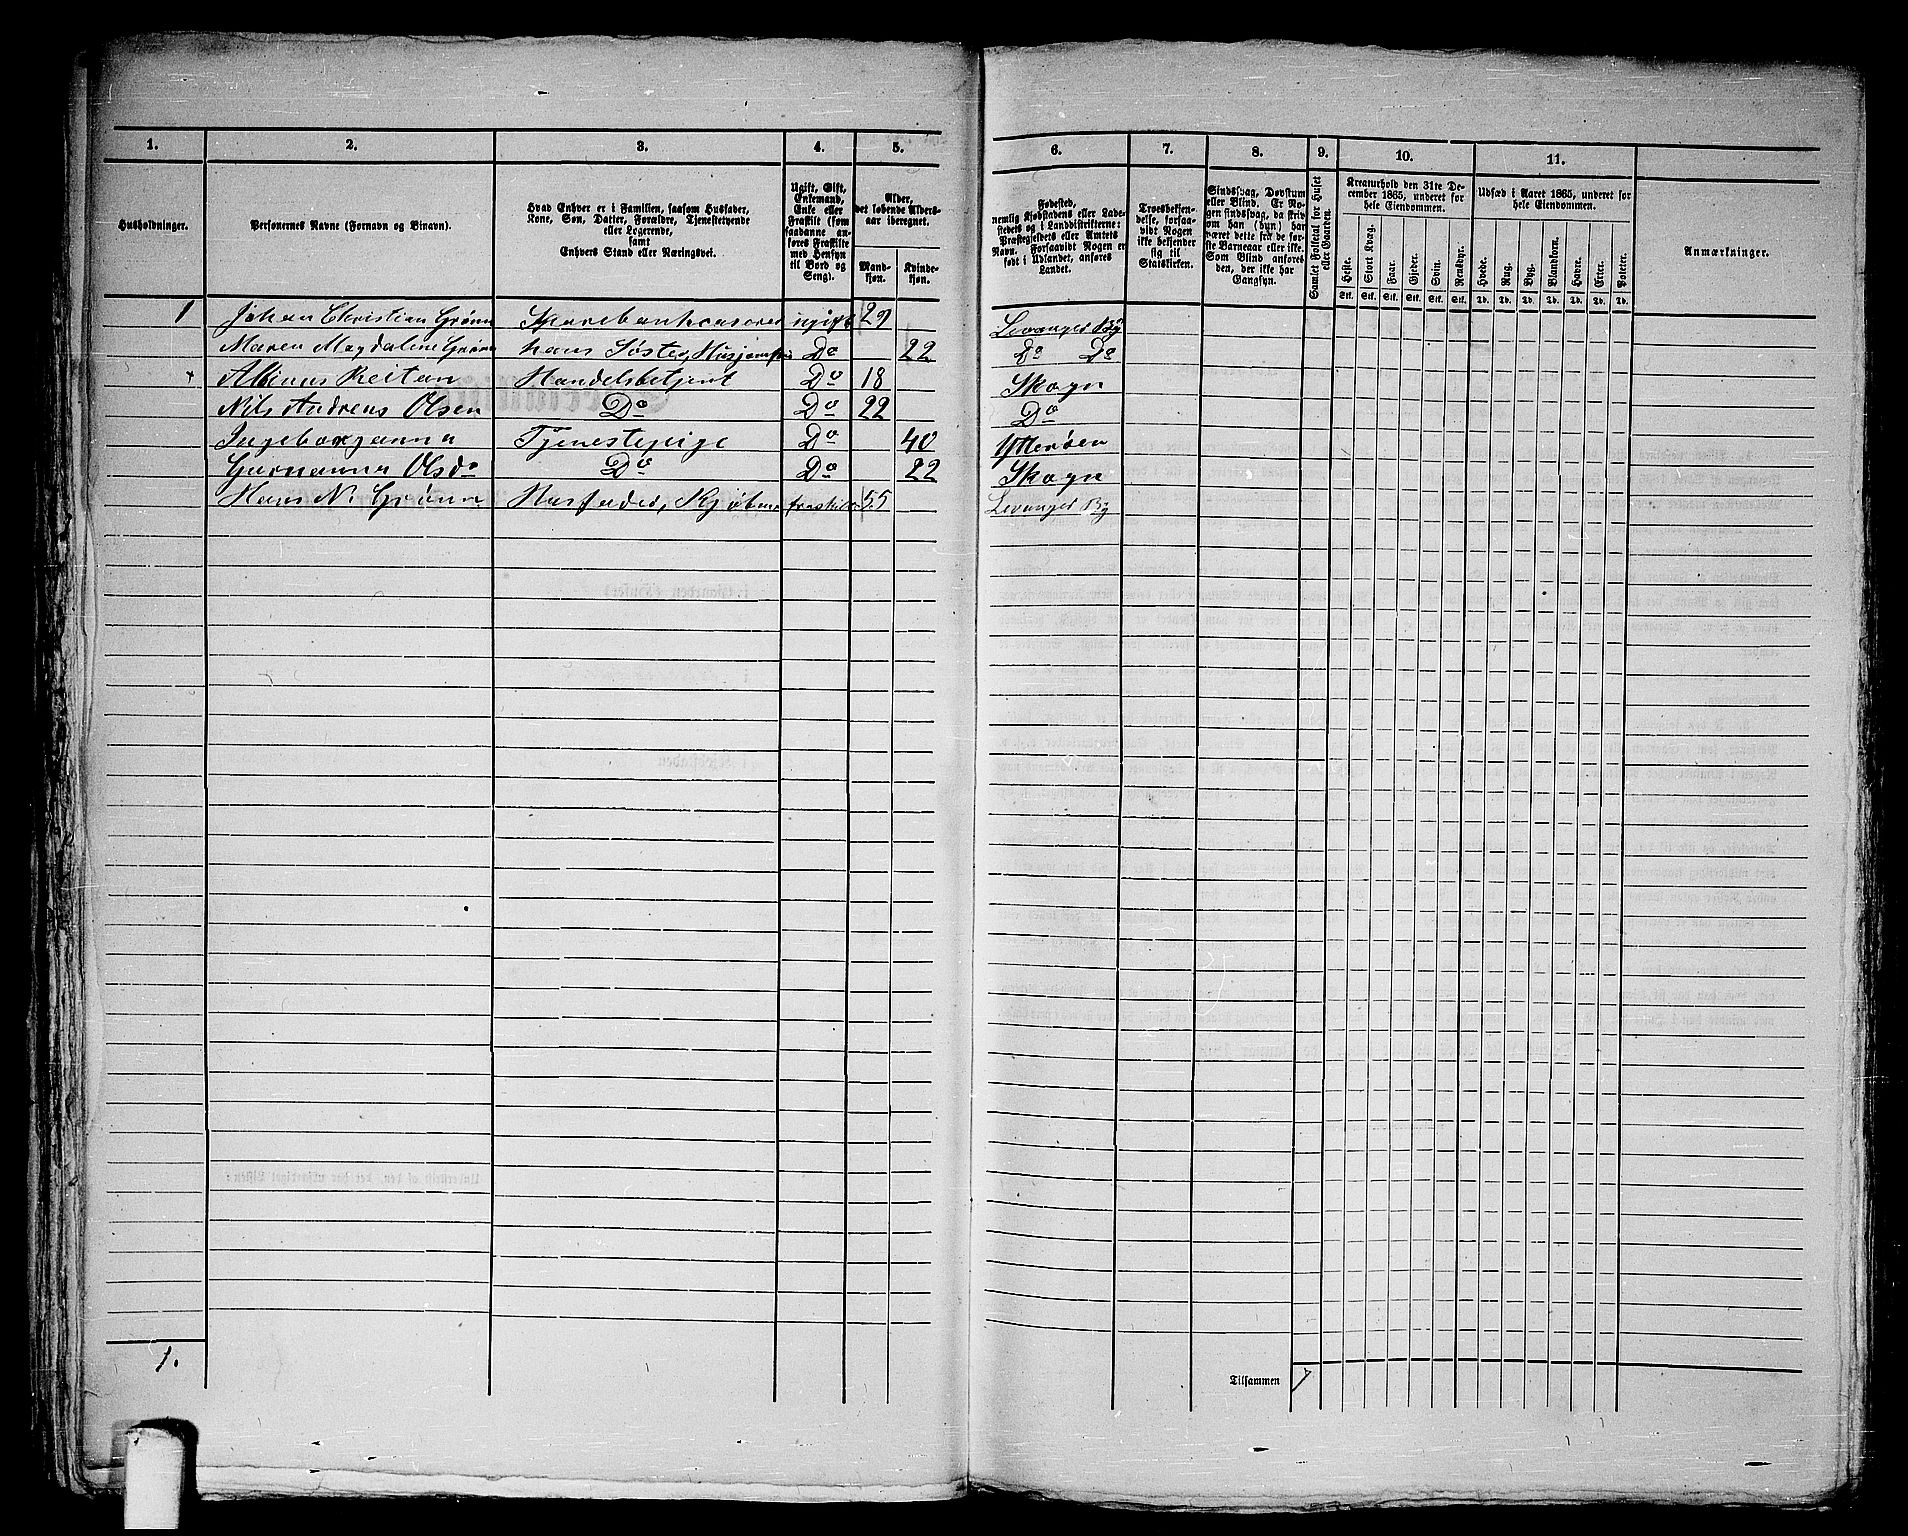 1. 2. 3. 4. 5. 6. 7. 8. 9. 10. 11.
Husholdninger.
Personernes Navne (Fornavn og Binavn).
Hvad Enhver er i Familien, saasom Husfader,
Kone, Søn, Datter, Forældre, Tjenestetyende
eller Logerende,
samt
Enhvers Stand eller Næringsvei.
Ugift, Gift,
Enkemand,
Enke eller
Fraskilt (som
saadanne an-
føres Fraskilte
med Hensyn
til Bord og
Seng).
Alder,
det løbende Alders-
aar iberegnet.
Mand-
kjøn.
Kvinde-
kjøn.
Fødested,
nemlig Kjøbstadens eller Lade-
stedets og i Landdistrikterne:
Præstegjeldets eller Amtets
Navn. Forsaavidt Nogen er
født i Udlandet, anføres
Landet.
Troesbekjen-
delse, forsaa-
vidt Nogen
ikke bekjender
sig til
Statskirken.
Sindssvag, Døvstum
eller Blind. Er No-
gen sindssvag, da skriv
om han (hun) har
været dette fra de før-
ste Barneaar eller ikke.
Som Blind anføres
den, der ikke har
Gangsyn.
Samlet Folketal for Huset
eller Gaarden.
Kreaturhold den 31te De-
cember 1865, underet for
hele Eiendommen.
Heste. Stort Kvæg. Faar. Gjeder. Svin. Rensdyr.
Stk. Stk. Stk. Stk. Stk. Stk.
Udsæd i Aaret 1865, underet for
hele Eiendommen.
Hvede. Rug. Byg. Blandkorn. Havre. Erter. Poteter.
Td. Td. Td. Td. Td. Td. Td.
Anmærkninger.
1 Johan Christian Grønn Sparebankcaserer ugift 29 Levanger By
Maren Magdalene Grønn hans Søster, Do 22 Do Do
Albinus Reitan Handelsbetjent Do 18 Skogn
Nils Andreas Olsen Do Do 22 Do
Ingeborganna Tjenestepige Do 40 Ytterøen
Gurnanna Olsdr Do Do 22 Skogn
Hans N. Grønn Husfader, fraskilt 55 Levanger By
1.
Tilsammen 7